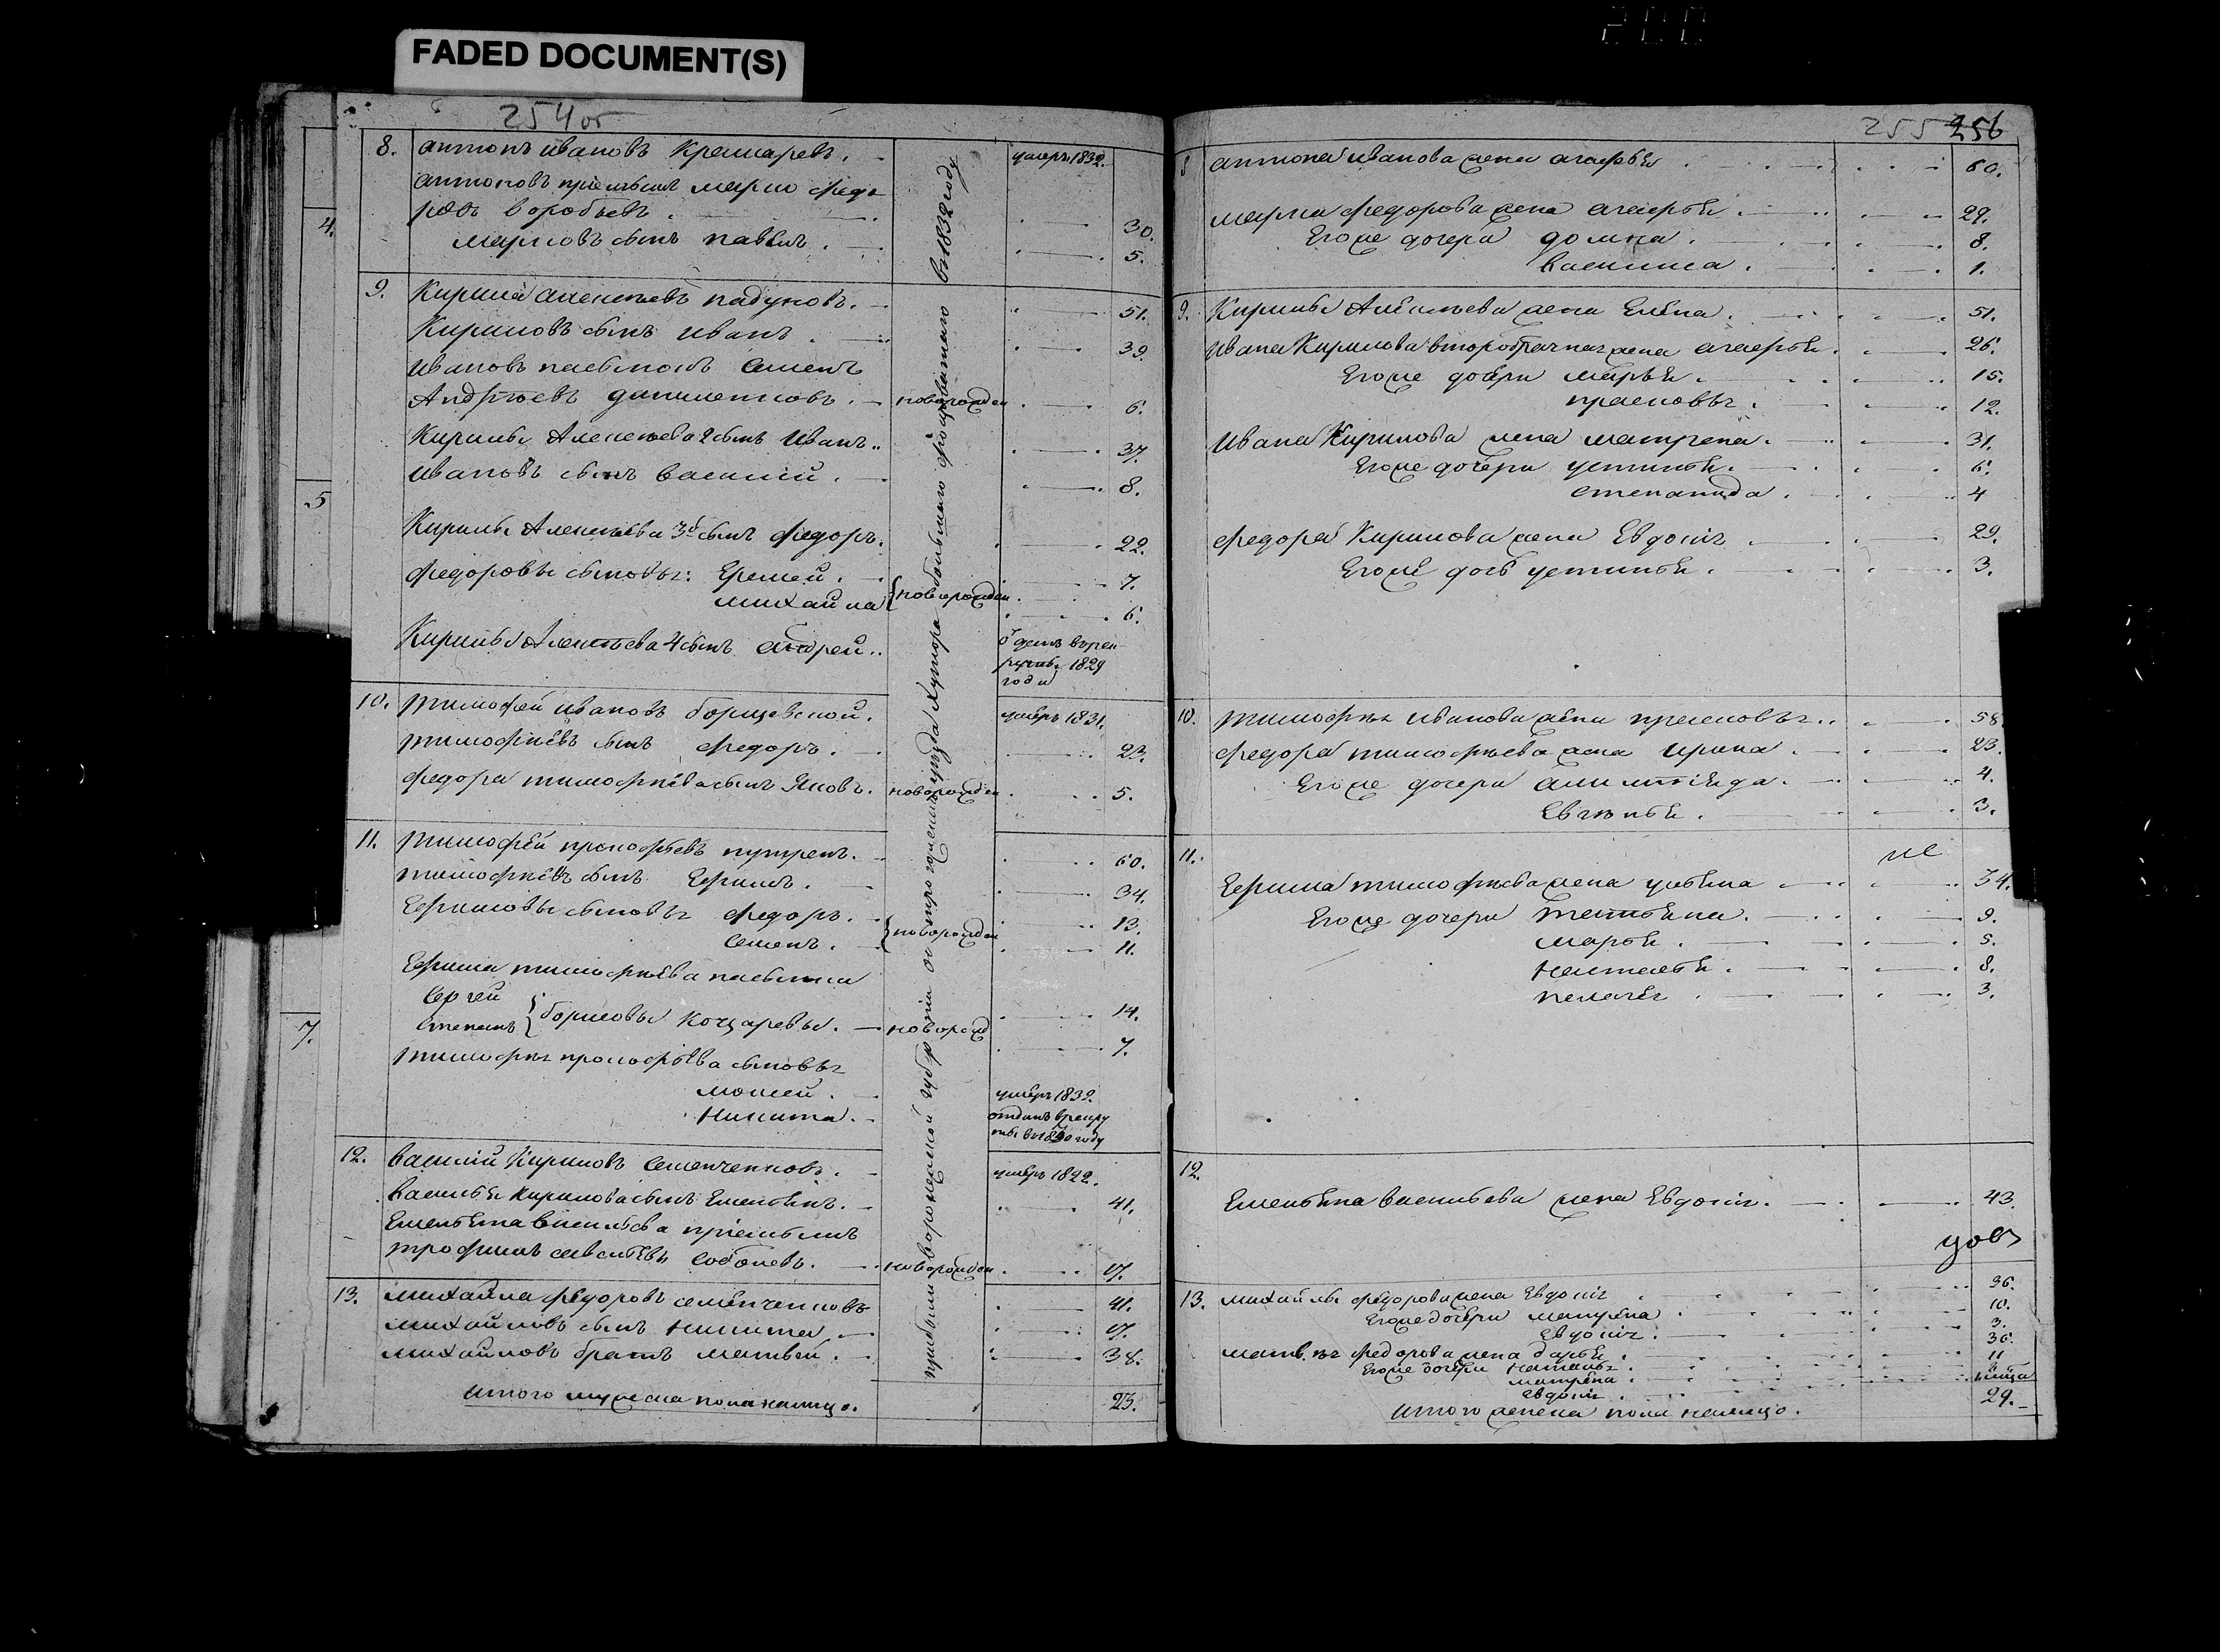 FADED DOCUMENT(S)
200
254 об
4.
5
7.
8. Антонъ Ивановъ Крамаревъ. умеръ 1832.
Антоновъ приемышъ Марко Федо
ровъ Воробьевъ. 30.
Марковъ сынъ Павелъ. 5.
9. Кирила Алексѣевъ Падуновъ. 51.
Кириловъ сынъ Иванъ. 39.
Ивановъ пасынокъ Семенъ
Андрѣевъ Даниленковъ. новорожден 6.
Кирилы Алексѣева 2 сынъ Иванъ. 37.
Ивановъ сынъ Василий. 8.
Кирилы Алексѣева 3й сынъ Федоръ. 22.
Федоровы сыновья: Еремей. 7.
Михайла новорожден 6.
Кирилы Алексѣева 4 сынъ Андрей.. отданъ въ рек
руты 1829
года
10. Тимофей Ивановъ Борщевской. умеръ 1831.
Тимофѣевъ сынъ Федоръ. 23.
Федора Тимофѣева сынъ Яковъ. новорожден 5.
11. Тимофей Прокофьевъ 60.
Тимофѣевъ сынъ Ефимъ. 34.
Ефимовы сыновья Федоръ. 13.
Семенъ. новорожден 11.
Ефима Тимофѣева пасынки
Сергей 14.
Степанъ Борисовы Коцаревы. новорожд 7.
Тимофѣя Прокофьева сыновья
Мокей. умеръ 1832.
Никита. отданъ в рекру
ты в 1830 году
12. Василий Кириловъ Семенченковъ. умеръ 1822.
Василья Кирилова сынъ Емельянъ. 41.
Емельяна Васильева приемышъ
Трофимъ Савельевъ Соболевъ. новорожден 17.
13. Михайла Федоровъ Семенченковъ 41.
Михайловъ сынъ Никита. 17.
Михайловъ братъ Матвей. 38.
Итого мужеска пола налицо. 23.
прибыли Воронежской губернии Острогожского уезда Хутора в 1832 году
255 256
8 Антона Иванова жена Агафья 60.
Марка Федорова жена Агафья. 29.
Его же дочери Домна. 8.
Василиса. 1.
9. Кирилы Алексѣева жена Елена. 51.
Ивана Кирилова второбрачная жена Агафья. 26.
Его же дочери Марья. 15.
Прасковья. 12.
Ивана Кирилова жена Матрена. 31.
Его же дочери Устинья. 6.
Степанида. 4
Федора Кирилова жена Евдокия 29.
Его же дочь Устинья. 3.
10. Тимофѣя Иванова жена Прасковья.. 58
Федора Тимофѣева жена Ирина. 23.
Его же дочери 4.
Евгенья. 3.
11.
Ефима Тимофѣева жена Ульяна 34.
Его же дочери Татьяна. 9.
Марья. 5.
Наталья. 8.
Пелагея 3.
12.
Емельяна Васильева жена Евдокия. 43.
13. Михайлы Федорова жена Евдокия 36.
Его же дочери Матрена 10.
Евдокия. 3.
Матвѣя Федорова жена Дарья. 36.
Его же дочери Наталья. 11
Матрена.
Евдокия.
Итого женска пола налицо. 29.